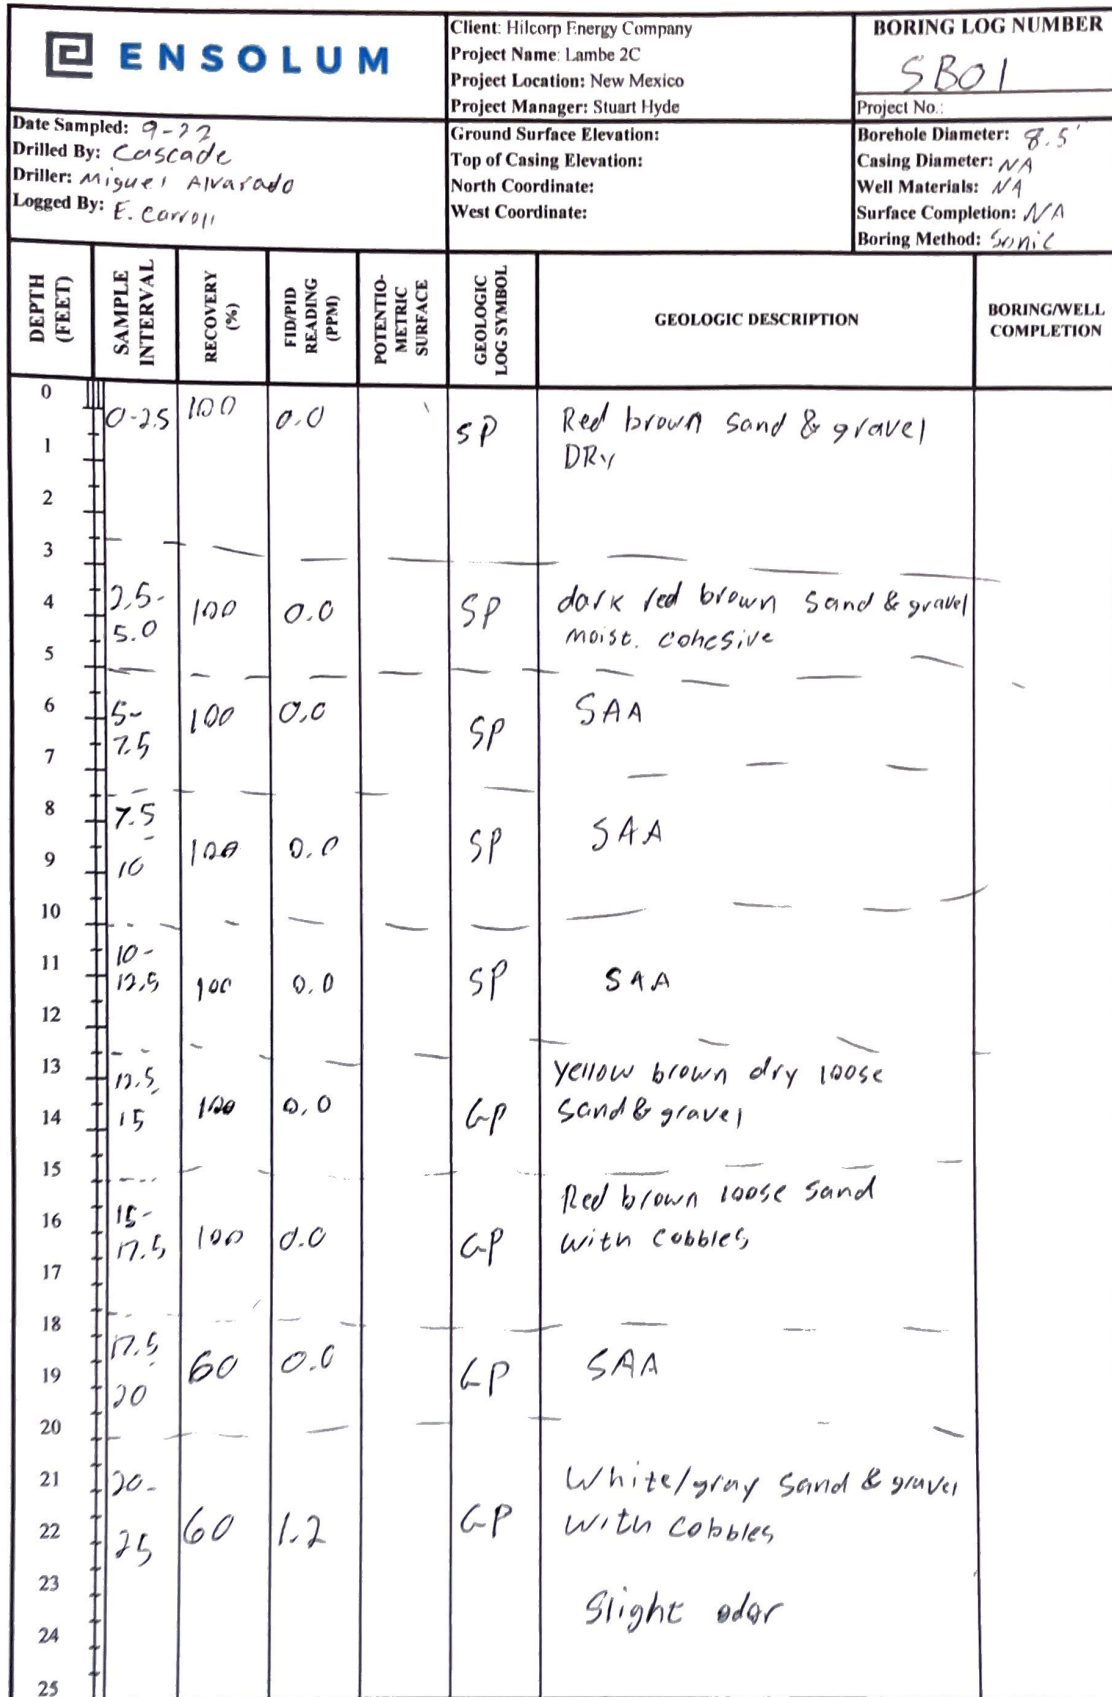 ENSOLUM
Client: Hilcorp Energy Company
Project Name: Lambe 2C
Project Location: New Mexico
Project Manager: Stuart Hyde
BORING LOG NUMBER
SB01
Project No.:
Date Sampled: 9-22
Drilled By: Cascade
Driller: Miguel Alvarado
Logged By: E. Carroll
Ground Surface Elevation:
Top of Casing Elevation:
North Coordinate:
West Coordinate:
Borehole Diameter: 8.5'
Casing Diameter: NA
Well Materials: NA
Surface Completion: N/A
Boring Method: Sonic
DEPTH (FEET)
SAMPLE INTERVAL
RECOVERY (%)
FID/PID READING (PPM)
POTENTIO-METRIC SURFACE
GEOLOGIC LOG SYMBOL
GEOLOGIC DESCRIPTION
BORING/WELL COMPLETION
0
0-2.5 100 0.0 SP Red brown sand & gravel
1 DRY
2
3
4 2.5- 100 0.0 SP dark red brown sand & gravel
5.0 moist. cohesive
5
6 5- 100 0.0 SP SAA
7.5
7
8 7.5
- 100 0.0 SP SAA
9 10
10
11 10-
12.5 100 0.0 SP SAA
12
13 yellow brown dry loose
12.5
14 15 100 0.0 GP sand & gravel
15
Red brown loose sand
16 15-
17.5 100 0.0 GP with cobbles
17
18
17.5
19 - 60 0.0 GP SAA
20
20
21 20- White/gray sand & gravel
22 25 60 1.2 GP with cobbles
23
Slight odor
24
25